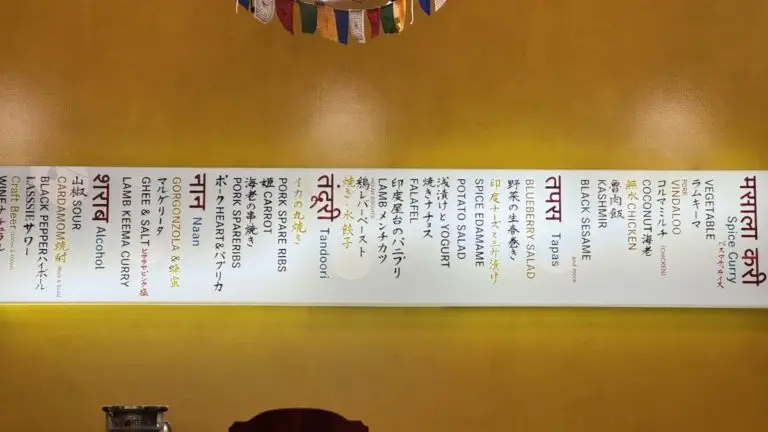 मसाला करी
Spice Curry
VEGETABLE
ラムキーマ
PORK
VINDALOO
コルマ・ミルチ (CHICKEN)
COCONUT 海老
無水 CHICKEN
魯肉飯
KASHMIR
BLACK SESAME
and more
तपस Tapas
BLUEBERRY SALAD
野菜の生春巻き
印度チーズと三升漬け
SPICE EDAMAME
POTATO SALAD
浅漬けと YOGURT
焼きナチョス
FALAFEL
印度屋台のパニプリ
LAMB メンチカツ
鶏レバーペースト
焼き・水餃子
तंदूरी Tandoori
イカの丸焼き
PORK SPARE RIBS
姫 CARROT
海老の串焼き
PORK SPARERIBS
ポーク HEART & パプリカ
नान Naan
GORGONZOLA & 蜂蜜
マルゲリータ
GHEE & SALT
LAMB KEEMA CURRY
शराब Alcohol
山椒 SOUR
CARDAMON 焼酎 (Rock & Soda)
BLACK PEPPER ハイボール
LASSSIE サワー
Craft Beer
WINE